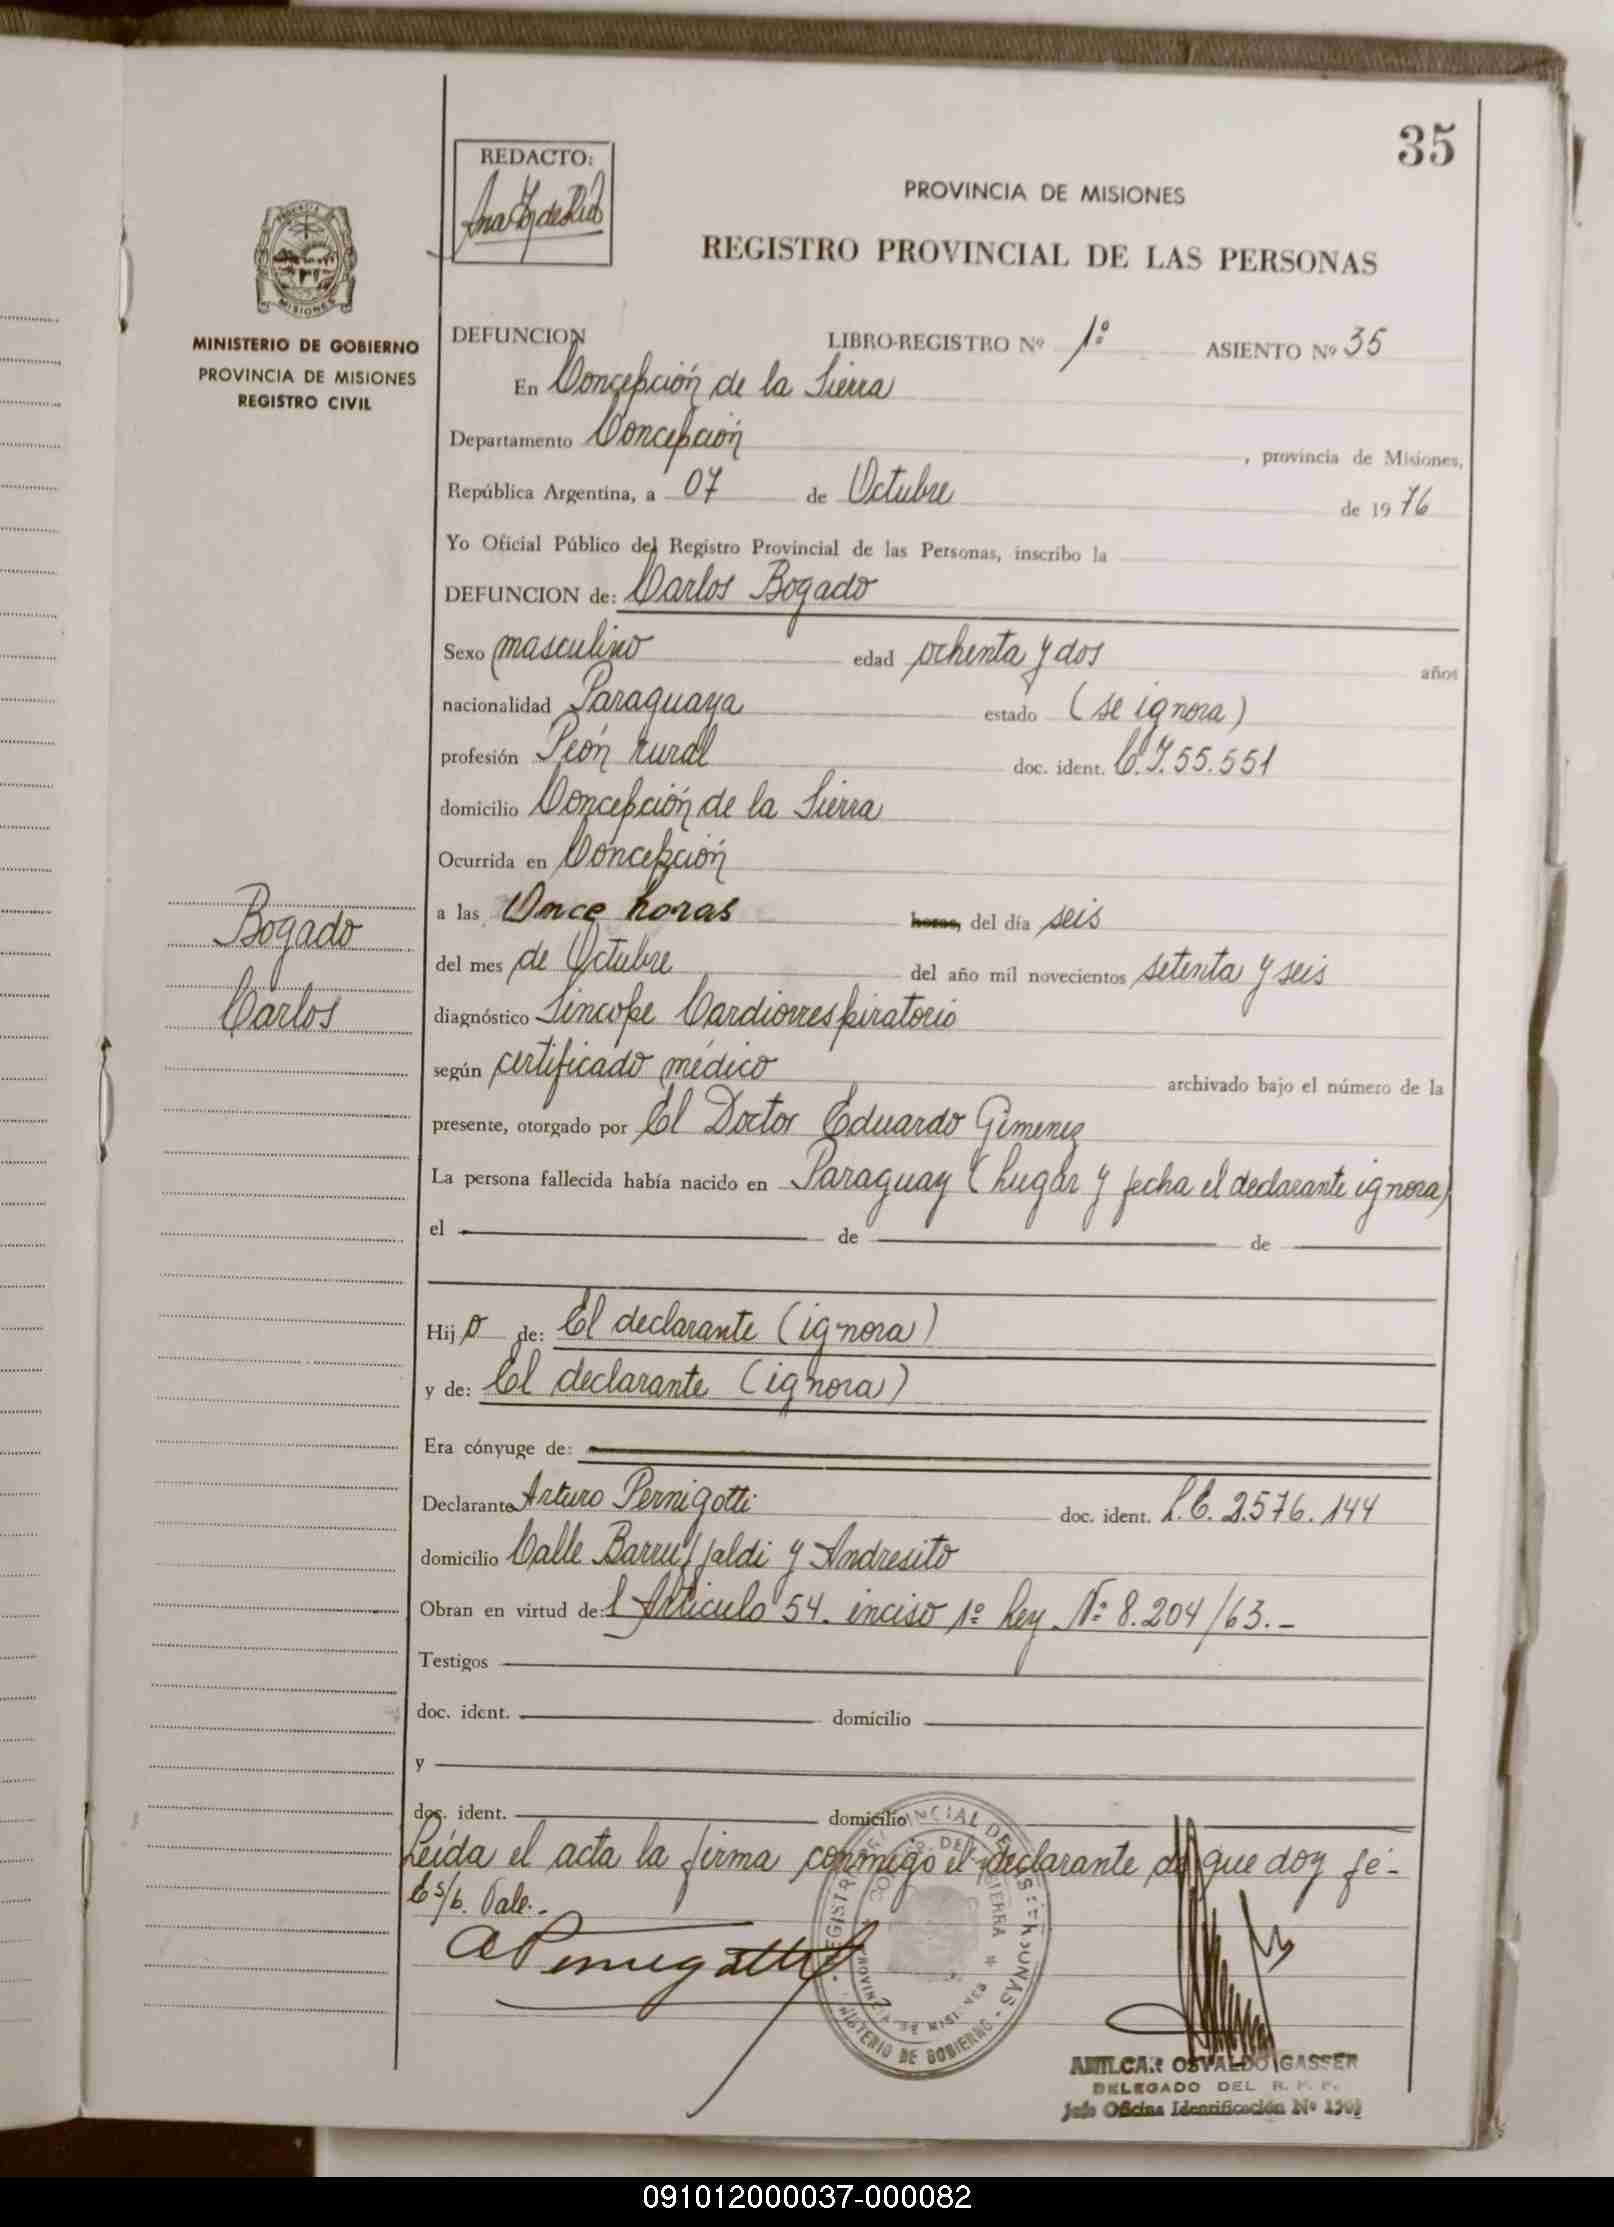 35
REDACTO:
PROVINCIA DE MISIONES
REGISTRO PROVINCIAL DE LAS PERSONAS
MISIONES
MINISTERIO DE GOBIERNO
PROVINCIA DE MISIONES
REGISTRO CIVIL
DEFUNCION LIBRO-REGISTRO Nº 1º ASIENTO Nº 35
En Concepción de la Sierra
Departamento Concepción, provincia de Misiones,
República Argentina, a 07 de Octubre de 1976
Yo Oficial Público del Registro Provincial de las Personas, inscribo la
DEFUNCION de: Carlos Bogado
Sexo masculino edad ochenta y dos años
nacionalidad Paraguaya estado (se ignora)
profesión Peón rural doc. ident. C.I. 55.551
domicilio Concepción de la Sierra
Ocurrida en Concepción
a las Once horas horas, del día seis
del mes de Octubre del año mil novecientos setenta y seis
diagnóstico Sincope Cardiorrespiratorio
según certificado médico archivado bajo el número de la
presente, otorgado por El Doctor Eduardo Gimenez
La persona fallecida había nacido en Paraguay (Lugar y fecha el declarante ignora)
el de de
Hijo de: El declarante (ignora)
y de: El declarante (ignora)
Era cónyuge de:
Declarante Arturo Pernigotti doc. ident. L.E. 2.576.144
domicilio Calle y Andresito
Obran en virtud de: l Artículo 54. inciso 1º Ley Nº 8.204/63.-
Testigos
doc. ident. domicilio
y
doc. ident. domicilio
Leída el acta la firma conmigo el declarante de que doy fé-
Es/b. Vale.-
Bogado
Carlos
MINISTERIO DE GOBIERNO
PROVINCIA DE MISIONES
AMILCAR OSVALDO GASSER
DELEGADO DEL R. P. P.
Jefe Oficina Identificación Nº
091012000037-000082